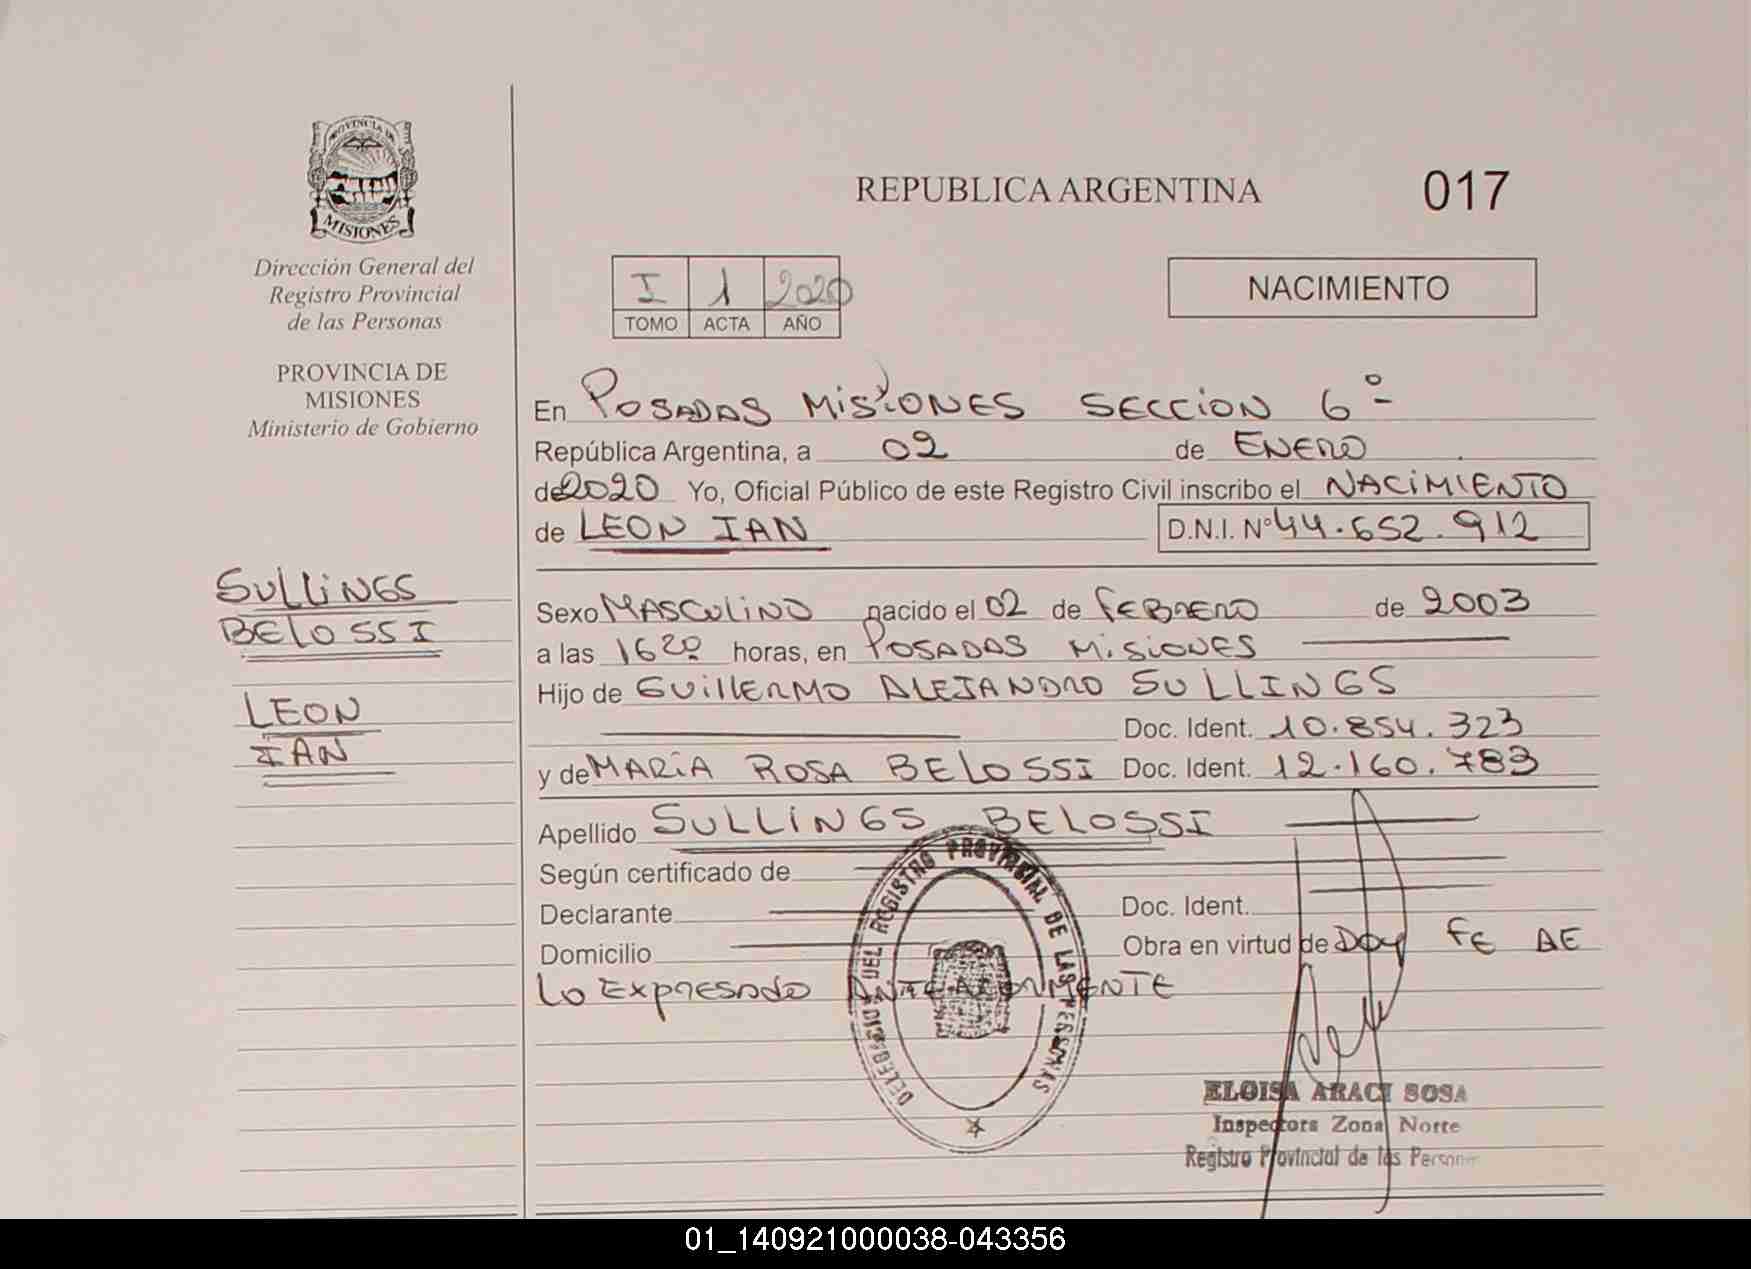 PROVINCIA DE
MISIONES
Dirección General del
Registro Provincial
de las Personas
PROVINCIA DE
MISIONES
Ministerio de Gobierno
SULLINGS
BELOSSI
LEON
IAN
REPUBLICA ARGENTINA
017
I 1 2020
TOMO ACTA AÑO
NACIMIENTO
En POSADAS MISIONES SECCION 6º
República Argentina, a 02 de ENERO
de 2020 Yo, Oficial Público de este Registro Civil inscribo el NACIMIENTO
de LEON IAN D.N.I. Nº 44.652.912
Sexo MASCULINO nacido el 02 de FEBRERO de 2003
a las 16 20 horas, en POSADAS MISIONES
Hijo de GUILLERMO ALEJANDRO SULLINGS
Doc. Ident. 10.854.323
y de MARÍA ROSA BELOSSI Doc. Ident. 12.160.783
Apellido SULLINGS BELOSSI
Según certificado de
Declarante Doc. Ident.
Domicilio Obra en virtud de Doy FE DE
Lo Expresado ANTERIORMENTE
DELEGACION DEL REGISTRO PROVINCIAL DE LAS PERSONAS
ELOISA ARACI SOSA
Inspectora Zona Norte
Registro Provincial de las Personas
01_140921000038-043356